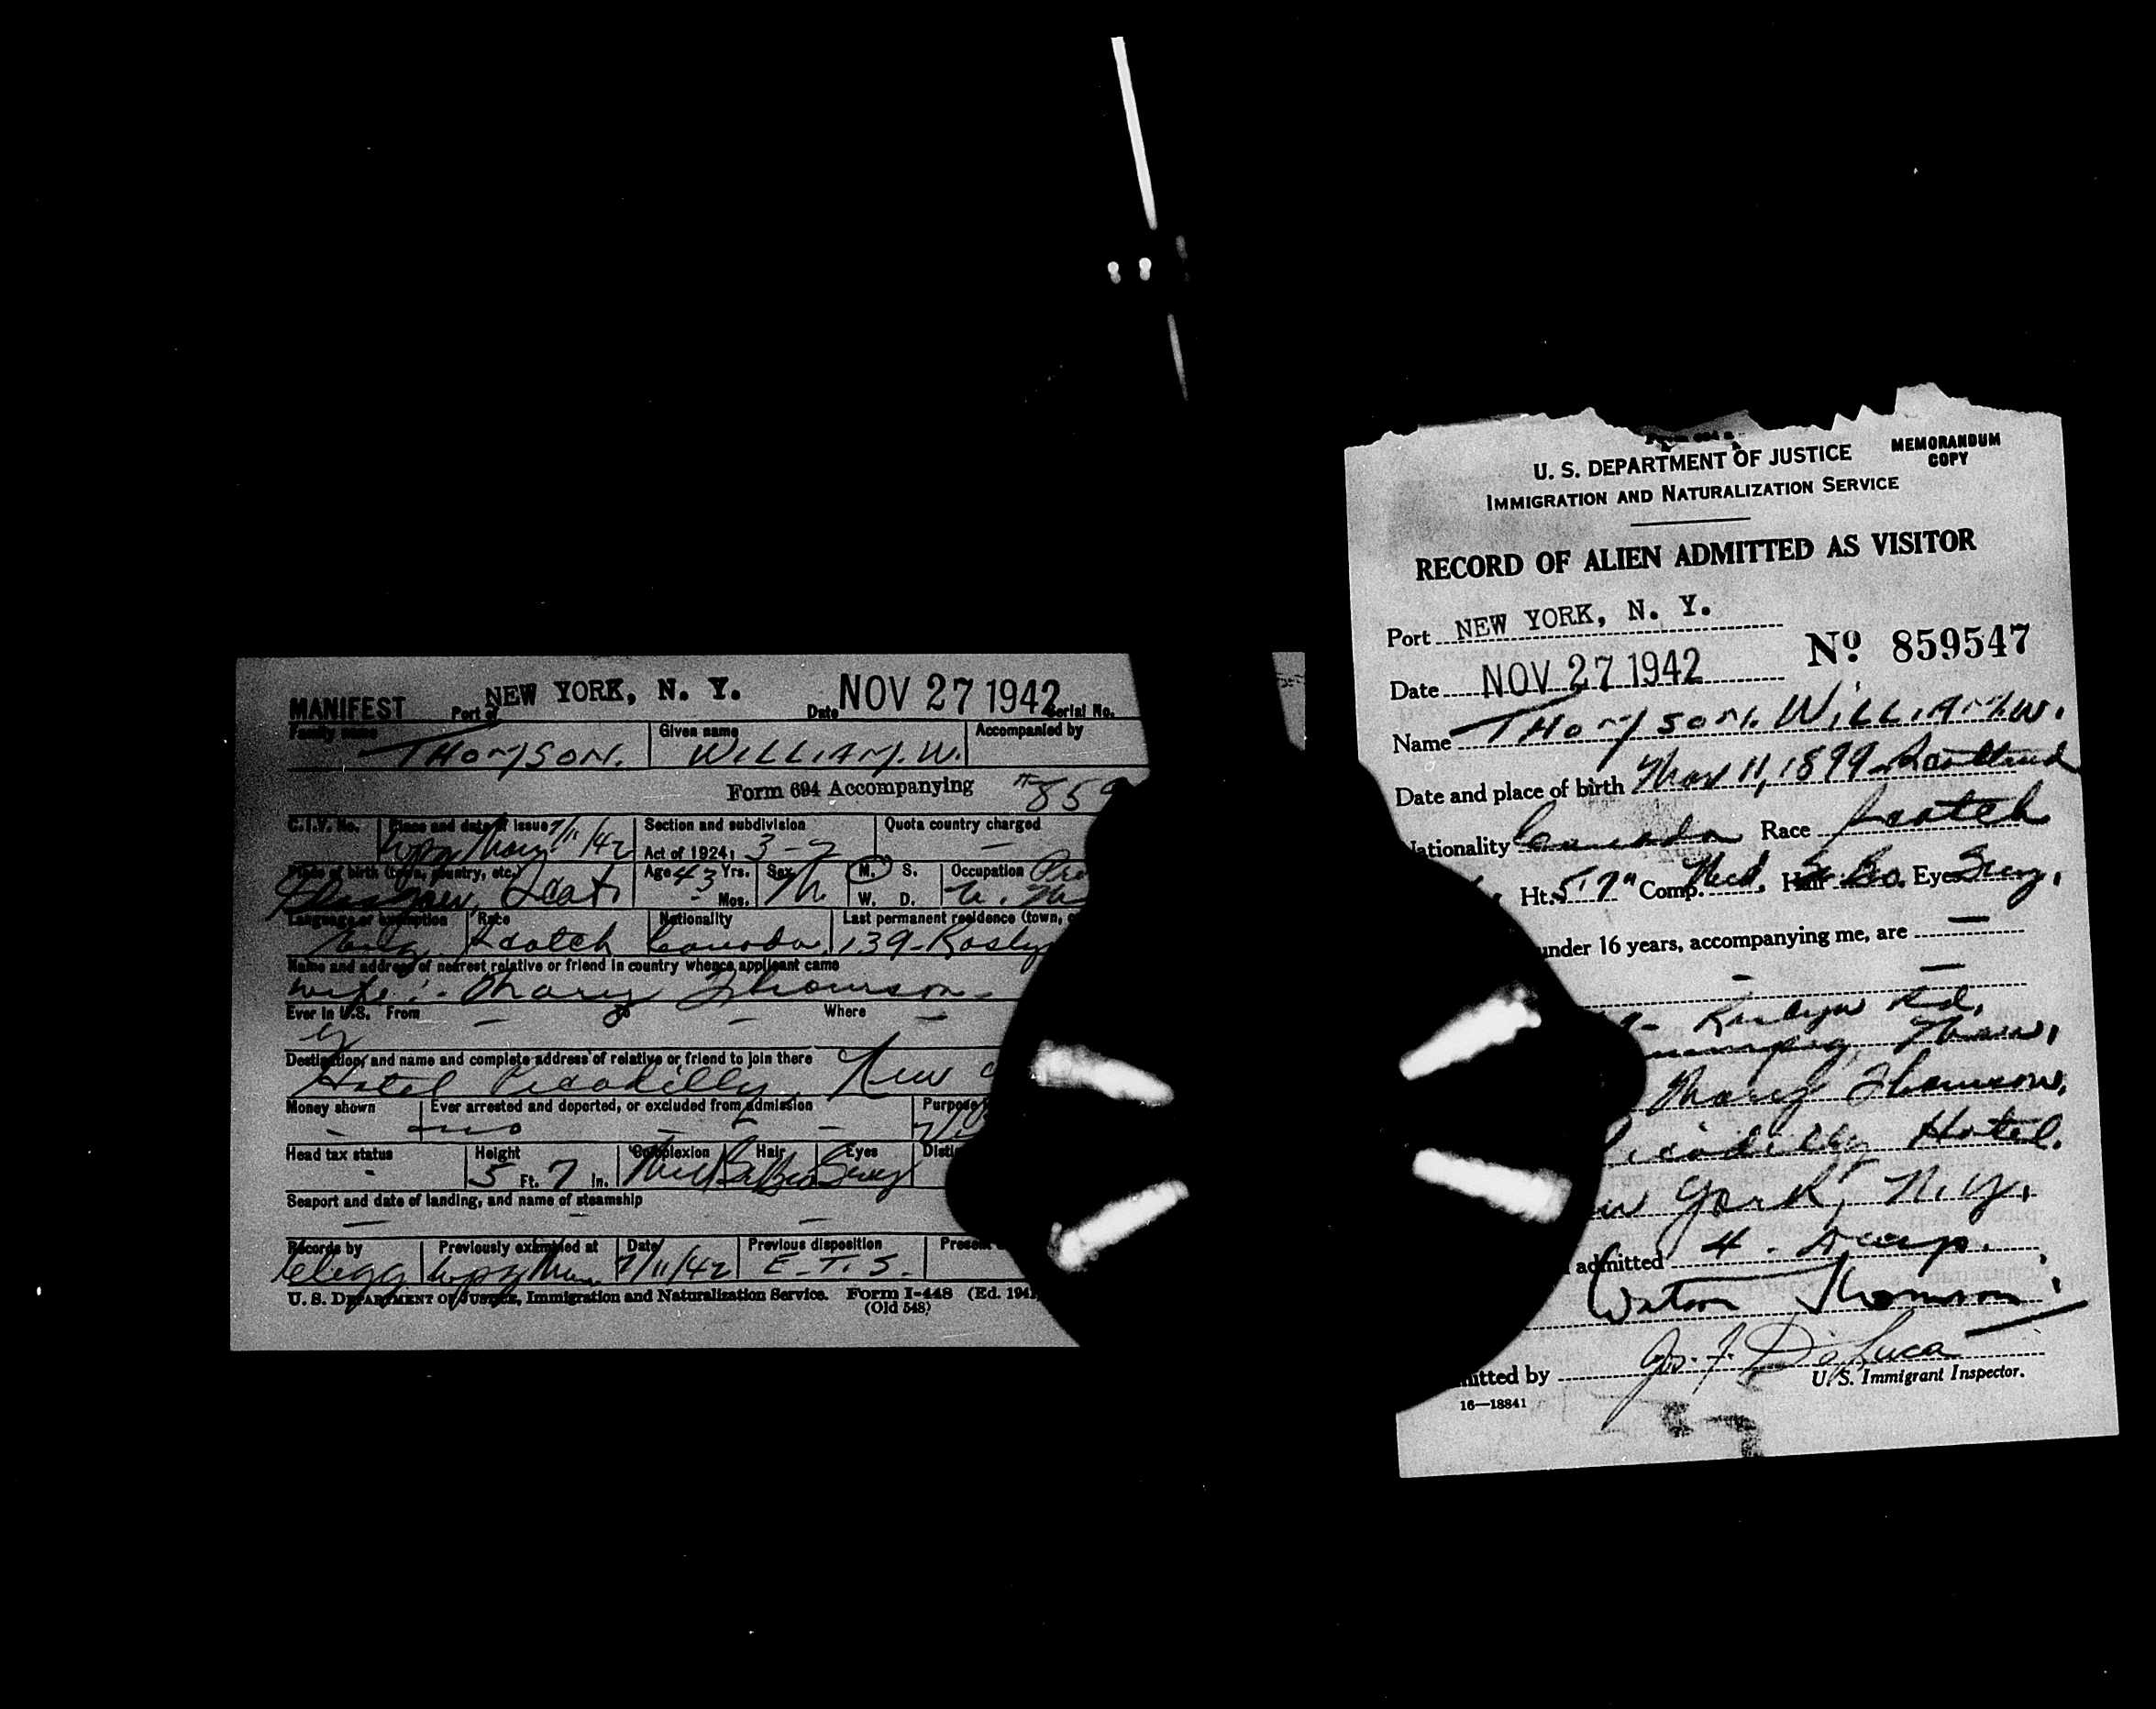 MANIFEST Port of NEW YORK, N. Y. Date NOV 27 1942 Serial No.
Family name THOMSON. Given name WILLIAM. W. Accompanied by
Form 694 Accompanying 859
C.I.V. No. Place and date of issue 7/11/42 Section and subdivision Act of 1924: 3-2 Quota country charged —
Place of birth (town, country, etc.) Glasgow, Scot. Age 43 Yrs. - Mos. Sex M. M. S. W. D. Occupation
Language or exemption Eng. Race Scotch Nationality Canada Last permanent residence (town, 139-Rosly
Name and address of nearest relative or friend in country whence applicant came
wife:- Mary Thomson-
Ever in U.S. From — to — Where —
y
Destination, and name and complete address of relative or friend to join there New
Hotel Picadilly,
Money shown - Ever arrested and deported, or excluded from admission no Purpose
Head tax status - Height 5 Ft. 7 In. Complexion Med Hair Eyes Grey
Seaport and date of landing, and name of steamship
— — —
Records by Clegg Previously examined at Wpg Man. Date 7/11/42 Previous disposition E.T.S.
U. S. DEPARTMENT OF JUSTICE, Immigration and Naturalization Service. Form I-448 (Ed. 194
(Old 548)
U. S. DEPARTMENT OF JUSTICE MEMORANDUM COPY
IMMIGRATION AND NATURALIZATION SERVICE
RECORD OF ALIEN ADMITTED AS VISITOR
Port NEW YORK, N. Y.
Nº 859547
Date NOV 27 1942
Name THOMSON. WILLIAM. W.
Date and place of birth 11, 1899 Scotland
Nationality Canada Race Scotch
Ht. 5'7" Comp. Med. Hair Eyes Grey.
under 16 years, accompanying me, are —
- —
Roslyn Rd,
Man,
Mary Thomson,
Picadilly Hotel.
New York, N.Y.
admitted 4.
Watson Thomson
mitted by Jos. F. DeLuca
U. S. Immigrant Inspector.
16—18841